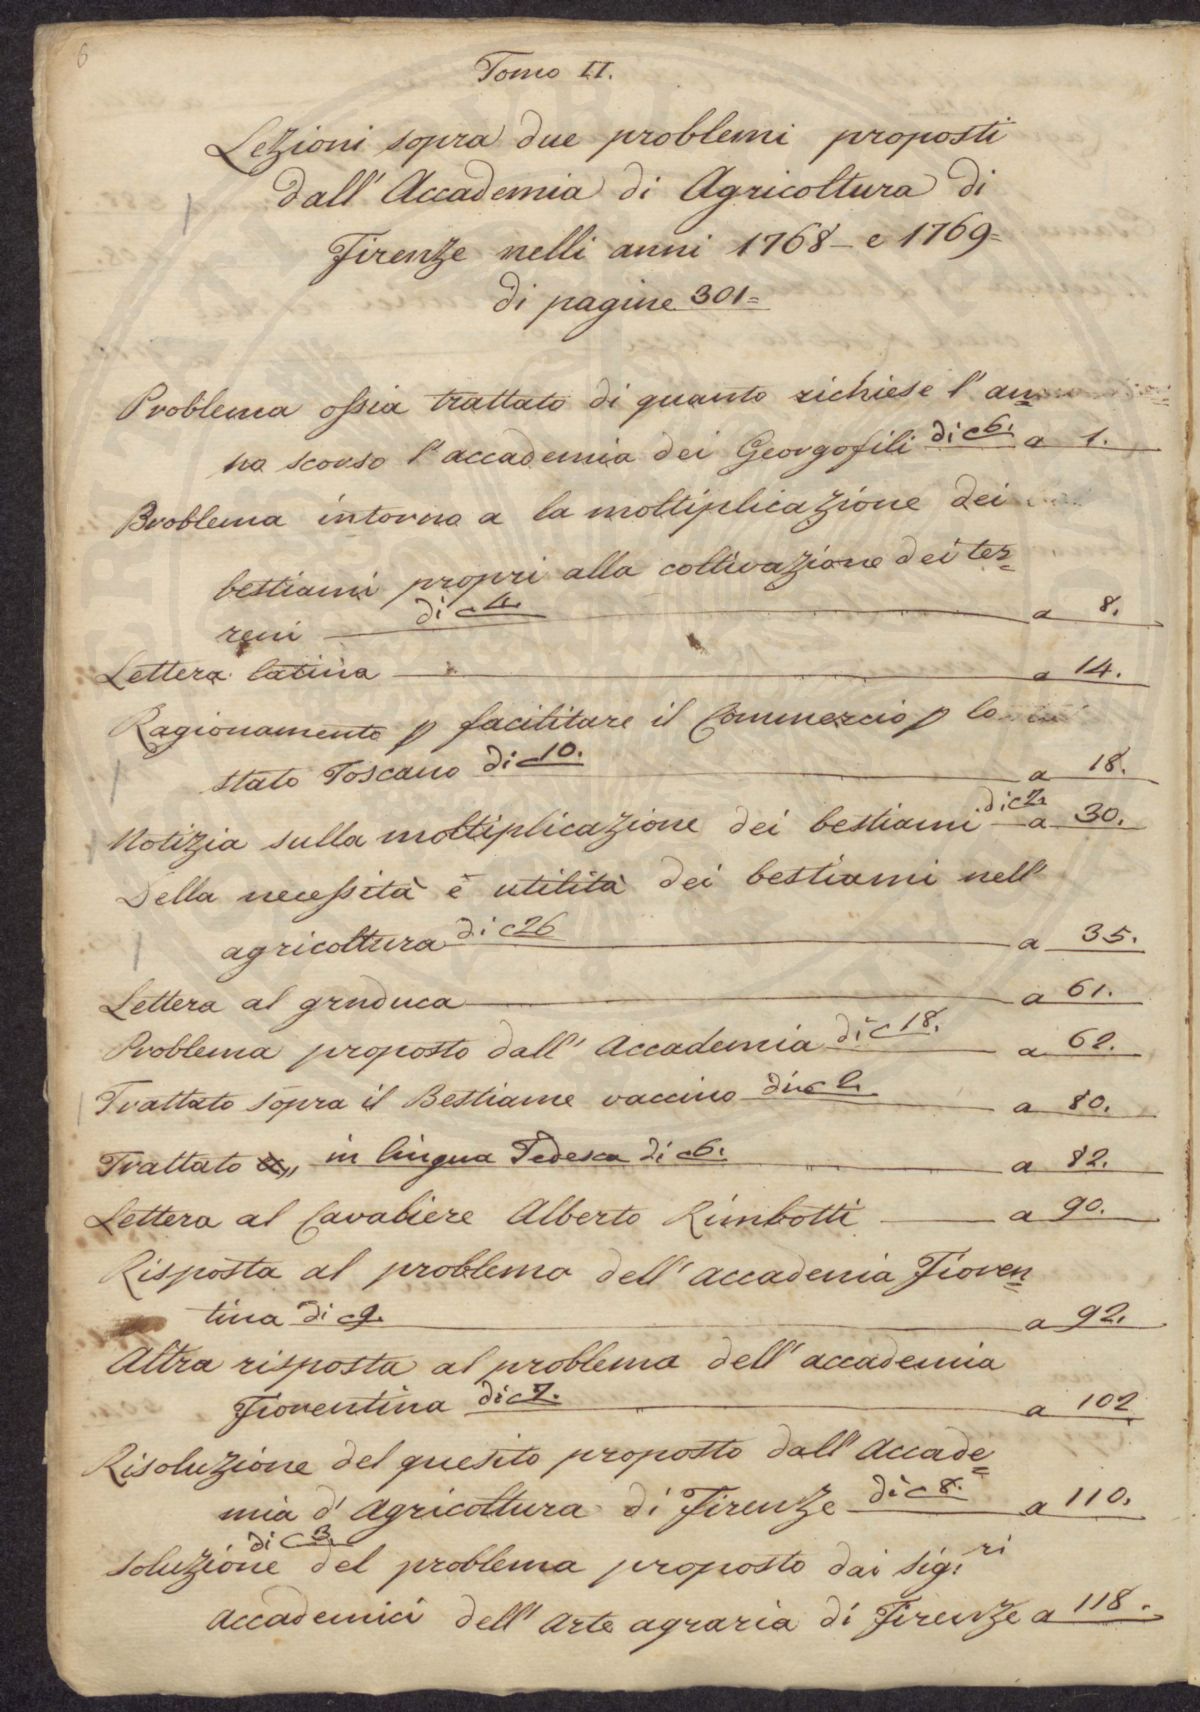 6
Tomo II.
Lezioni sopra due problemi proposti
dall' Accademia di Agricoltura di
Firenze nelli anni 1768 - e 1769=
di pagine 301=
Problema ossia trattato di quanto richiese l' an=
no scorso l' accademia dei Georgofili di c 6. a 1.
Problema intorno a la moltiplicazione dei
bestiami propri alla coltivazione dei ter=
reni di c 4. a 8.
Lettera latina a 14.
Ragionamento p facilitare il Commercio p lo
stato Toscano di c 10. a 18.
Notizia sulla moltiplicazione dei bestiami di c 2. a 30.
Della necessità è utilità dei bestiami nell'
agricoltura di c 26 a 35.
Lettera al grnduca a 61.
Problema proposto dall' Accademia di c 18. a 62.
Trattato sopra il Bestiame vaccino di c 2. a 80.
Trattato in lingua Tedesca di c 6. a 82.
Lettera al Cavaliere Alberto Rimbotti a 90.
Risposta al problema dell' accademia Fioren=
tina di c 9. a 92.
Altra risposta al problema dell' accademia
Fiorentina di c 7. a 102
Risoluzione del quesito proposto dall' Accade=
mia d' Agricoltura di Firenze di c 8. a 110.
soluzione di c 3. del problema proposto dai sig.ri
accademici dell' arte agraria di Firenze a 118.